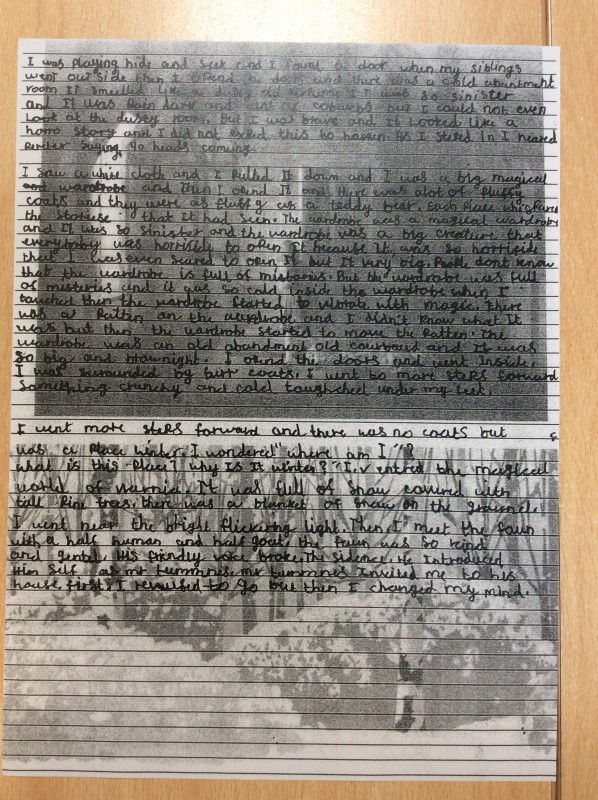 I was playing hide and seek and I found a door when my siblings
went out side then I opend the door and there was a cold abantment
room It smelled like a dusty old so sinister
and It was Puen dark and cobwebs but I could not even
Look at the dusty room. But I was brave and It looked like a
horro story and I did not exPed this to haPPen. As I steped in I heared
saying go heads coming.
I saw a white cloth and I Pulled It down and I was a big magical
wardrobe and then I opend It and there was alot of fluffy
coats and they were as fluffy as a teddy bear. Each Place whisPered
the storiese that It had seen. The wardrobe was a magical wardrobe
and It was so sinister and the wardrobe was a big creature that
everybotby was horriside to oPen It because It was so horriside
that I was even scared to oPen It but It very big. PeoPle don't know
that the wardrobe is full of mistories. But the wardrobe was full
of misteries and it was so cold inside the wardrobe when I
touched then the wardrobe started to vibrate with magic. There
was a Patten on the wardrobe and I didn't know what It
was but then the wardrobe started to move the Patten. The
wardrobe was an old abandment old courboard and It was
so big and brownight. I opend the doors and went Inside.
I was surounded by furr coats. I went to more steps forward
Something crunchy and cold toughched under my feet.
I went more stePs forward and there was no coats but
was a Place winter. I wondered" where am I"?
what is this Place? why Is It winter?" I.v entred the magical
world of Narnia. It was full of snow covured with
tall Pine trees, there was a blanket of snow on the ground.
I went near the bright flickering light. Then I meet the faun
with a half human and half goat, the faun was so keind
and gentel. His friendly voice broke. The silence. He Introduced
Him self as mr tummnes. mr tummnes Invited me to his
house, first. I revussed to go but then I changed my mind.